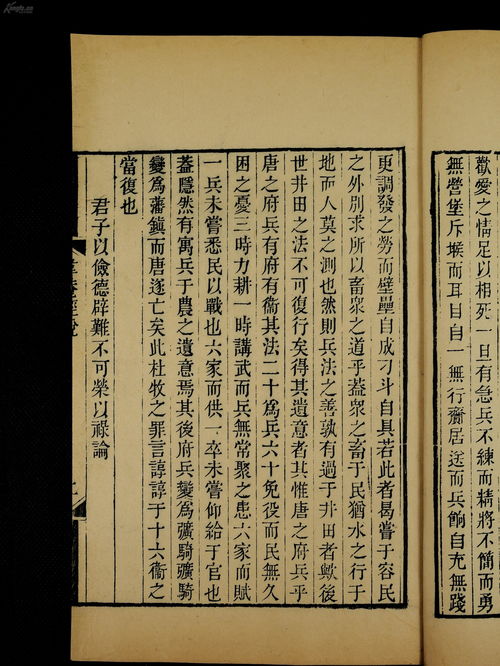 歡愛之情足以相死一旦有急兵不練而精將不簡而勇
無營堡斥堠而耳目自一無行齎居送而兵餉自充無踐
更調發之勞而壁壘自成刁斗自具若此者曷嘗于容民
之外别求所以畜衆之道乎葢衆之畜于民猶水之行于
地而人莫之測也然則兵法之善孰有過于井田者歟後
世井田之法不可復行矣得其遺意者其惟唐之府兵乎
唐之府兵有府有衞其法二十爲兵六十免役而民無久
困之憂三時力耕一時講武而兵無常聚之患六家而賦
一兵未嘗悉民以戰也六家而供一卒未嘗仰給于官也
葢隱然有寓兵于農之遺意焉其後府兵變爲彍騎彍騎
變爲藩鎮而唐遂亡矣此杜牧之罪言諄諄于十六衞之
當復也
君子以儉德辟難不可榮以祿論